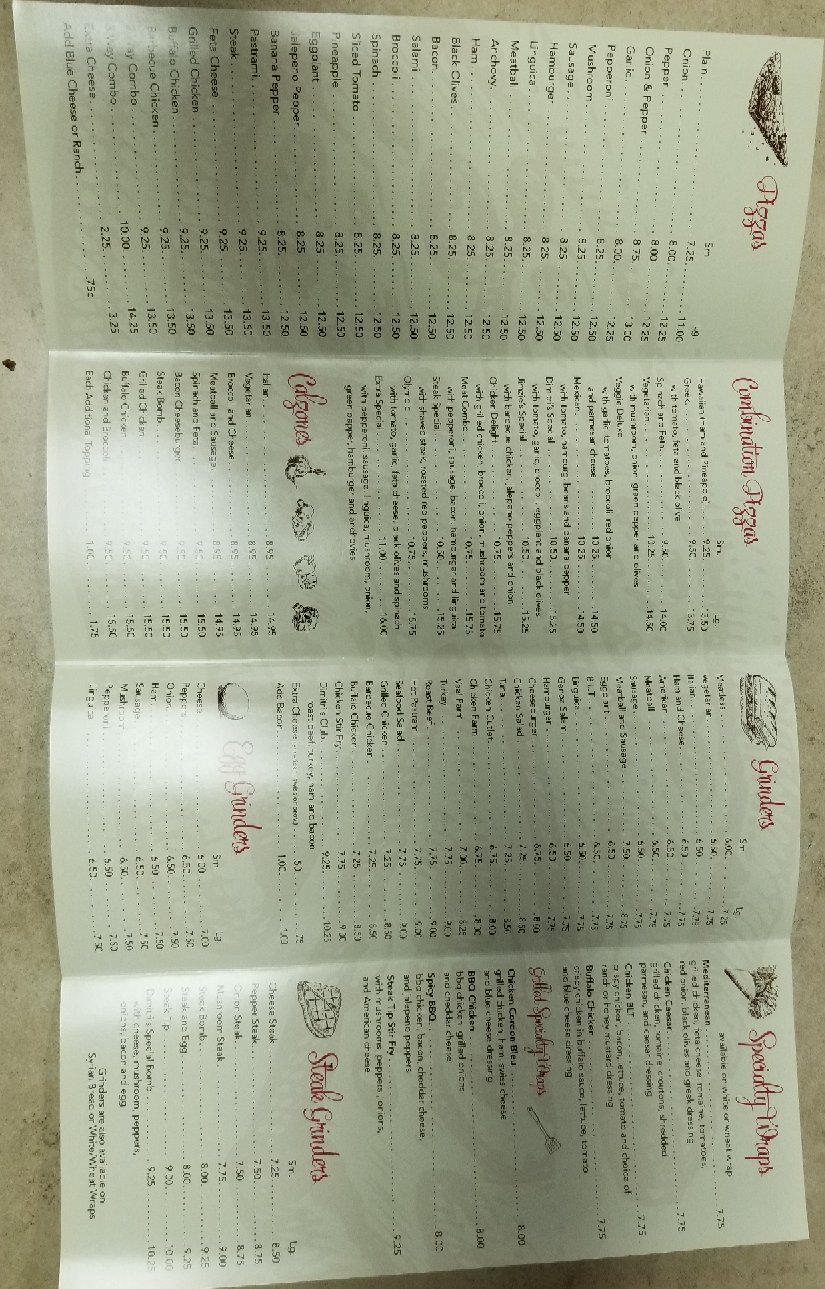 Pizzas
Sm. Lg.
Plain 7.25 11.00
Onion 8.00 12.25
Pepper 8.00 12.25
Onion & Pepper 8.75 13.00
Garlic 8.00 12.25
Pepperoni 8.25 12.50
Mushroom 8.25 12.50
Sausage 8.25 12.50
Hamburger 8.25 12.50
Linguica 8.25 12.50
Meatball 8.25 12.50
Anchovy 8.25 12.50
Ham 8.25 12.50
Black Olives 8.25 12.50
Bacon 8.25 12.50
Salami 8.25 12.50
Broccoli 8.25 12.50
Spinach 8.25 12.50
Sliced Tomato 8.25 12.50
Pineapple 8.25 12.50
Eggplant 8.25 12.50
Jalepeno Pepper 8.25 12.50
Banana Pepper 8.25 12.50
Pastrami 9.25 13.50
Steak 9.25 13.50
Feta Cheese 9.25 13.50
Grilled Chicken 9.25 13.50
Buffalo Chicken 9.25 13.50
Barbecue Chicken 9.25 13.50
Way Combo 10.00 14.25
Way Combo
Extra Cheese 2.25 3.25
Add Blue Cheese or Ranch .75¢
Combination Pizzas
Sm. Lg.
Hawaiian (Ham and Pineapple) 9.25 13.50
Greek 9.50 13.75
with tomato, feta and black olive
Spinach and Feta 9.50 14.00
Vegetarian 10.25 14.50
with mushroom, onion, green pepper and olives
Veggie Deluxe 10.25 14.50
with garlic, tomatoes, broccoli, red onion
and parmesan cheese
Mexican 10.25 14.50
with tomato, hamburg, beans and banana pepper
Dimitri's Special 10.50 15.25
with tomato, garlic, broccoli, eggplant and black olives
Jimzik's Special 10.50 15.25
with barbecue chicken, jalepeno peppers and onion
Chicken Delight 10.75 15.75
with grilled chicken, broccoli, onion, mushroom and tomato
Meat Combo 10.75 15.75
with pepperoni, sausage, bacon, hamburger and linguica
Steak Special 10.50 15.25
with shaved steak, roasted red peppers, mushrooms
Olympic 10.75 15.75
with tomato, garlic, feta cheese, black olives and spinach
Extra Special 11.00 16.00
with pepperoni, sausage, linguica, mushroom, onion,
green pepper, hamburger and anchovies
Calzones
Italian 8.95 14.95
Vegetarian 8.95 14.95
Broccoli and Cheese 8.95 14.95
Meatball and Sausage 8.95 14.95
Spinach and Feta 9.50 15.50
Bacon Cheeseburger 9.50 15.50
Steak Bomb 9.50 15.50
Grilled Chicken 9.50 15.50
Buffalo Chicken 9.50 15.50
Chicken and Broccoli 9.50 15.50
Each Additional Topping 1.00 1.75
Grinders
Sm. Lg.
Meatless 6.00 7.25
Vegetarian 6.50 7.75
Italian 6.50 7.75
Ham and Cheese 6.50 7.75
American 6.50 7.75
Meatball 6.50 7.75
Sausage 6.50 7.75
Meatball and Sausage 7.50 8.75
Eggplant 6.50 7.75
BLT 6.50 7.75
Linguica 6.50 7.75
Genoa Salami 6.50 7.75
Hamburger 6.50 7.75
Cheeseburger 6.75 8.00
Chicken Salad 7.25 8.50
Tuna 7.25 8.50
Chicken Cutlet 6.75 8.00
Chicken Parm 6.75 8.00
Veal Parm 7.00 8.25
Turkey 7.75 9.00
Roast Beef 7.75 9.00
Hot Pastrami 7.75 9.00
Seafood Salad 7.75 9.00
Grilled Chicken 7.25 8.50
Barbecue Chicken 7.25 8.50
Buffalo Chicken 7.25 8.50
Chicken Stir Fry 7.75 9.00
Dimitri's Club 9.25 10.25
roast beef, turkey, ham and bacon
Extra Cheese .50 .75
Add Bacon 1.00 1.00
Egg Grinders
Sm. Lg.
Cheese 6.00 7.00
Pepper 6.50 7.50
Onion 6.50 7.50
Ham 6.50 7.50
Sausage 6.50 7.50
Mushroom 6.50 7.50
Pepperoni 6.50 7.50
Linguica 6.50 7.50
Specialty Wraps
available on white or wheat wrap
Mediterranean 7.75
grilled chicken, feta cheese, romaine, tomatoes,
red onion, black olives and greek dressing
Chicken Caesar 7.75
grilled chicken, romaine, croutons, shredded
parmesan and caesar dressing
Chicken BLT 7.75
crispy chicken, bacon, lettuce, tomato and choice of
ranch or honey mustard dressing
Buffalo Chicken 7.75
crispy chicken in buffalo sauce, lettuce, tomato
and blue cheese dressing
Grilled Specialty Wraps
Chicken Cordon Bleu 8.00
grilled chicken, ham, swiss cheese
and blue cheese dressing
BBQ Chicken 8.00
bbq chicken, grilled onions
and cheddar cheese
Spicy BBQ 8.00
bbq chicken, bacon, cheddar cheese,
and jalepeno peppers
Steak Tip Stir Fry 9.25
with mushrooms, peppers, onions,
and American cheese
Steak Grinders
Sm. Lg.
Cheese Steak 7.25 8.50
Pepper Steak 7.50 8.75
Onion Steak 7.50 8.75
Mushroom Steak 7.75 9.00
Steak Bomb 8.00 9.25
Steak and Egg 8.00 9.25
Steak Tip 9.00 10.00
Dimitri's Special Bomb 9.25 10.25
with cheese, mushroom, peppers,
onions, bacon and egg
Grinders are also available on
Syrian Bread or White/Wheat Wraps